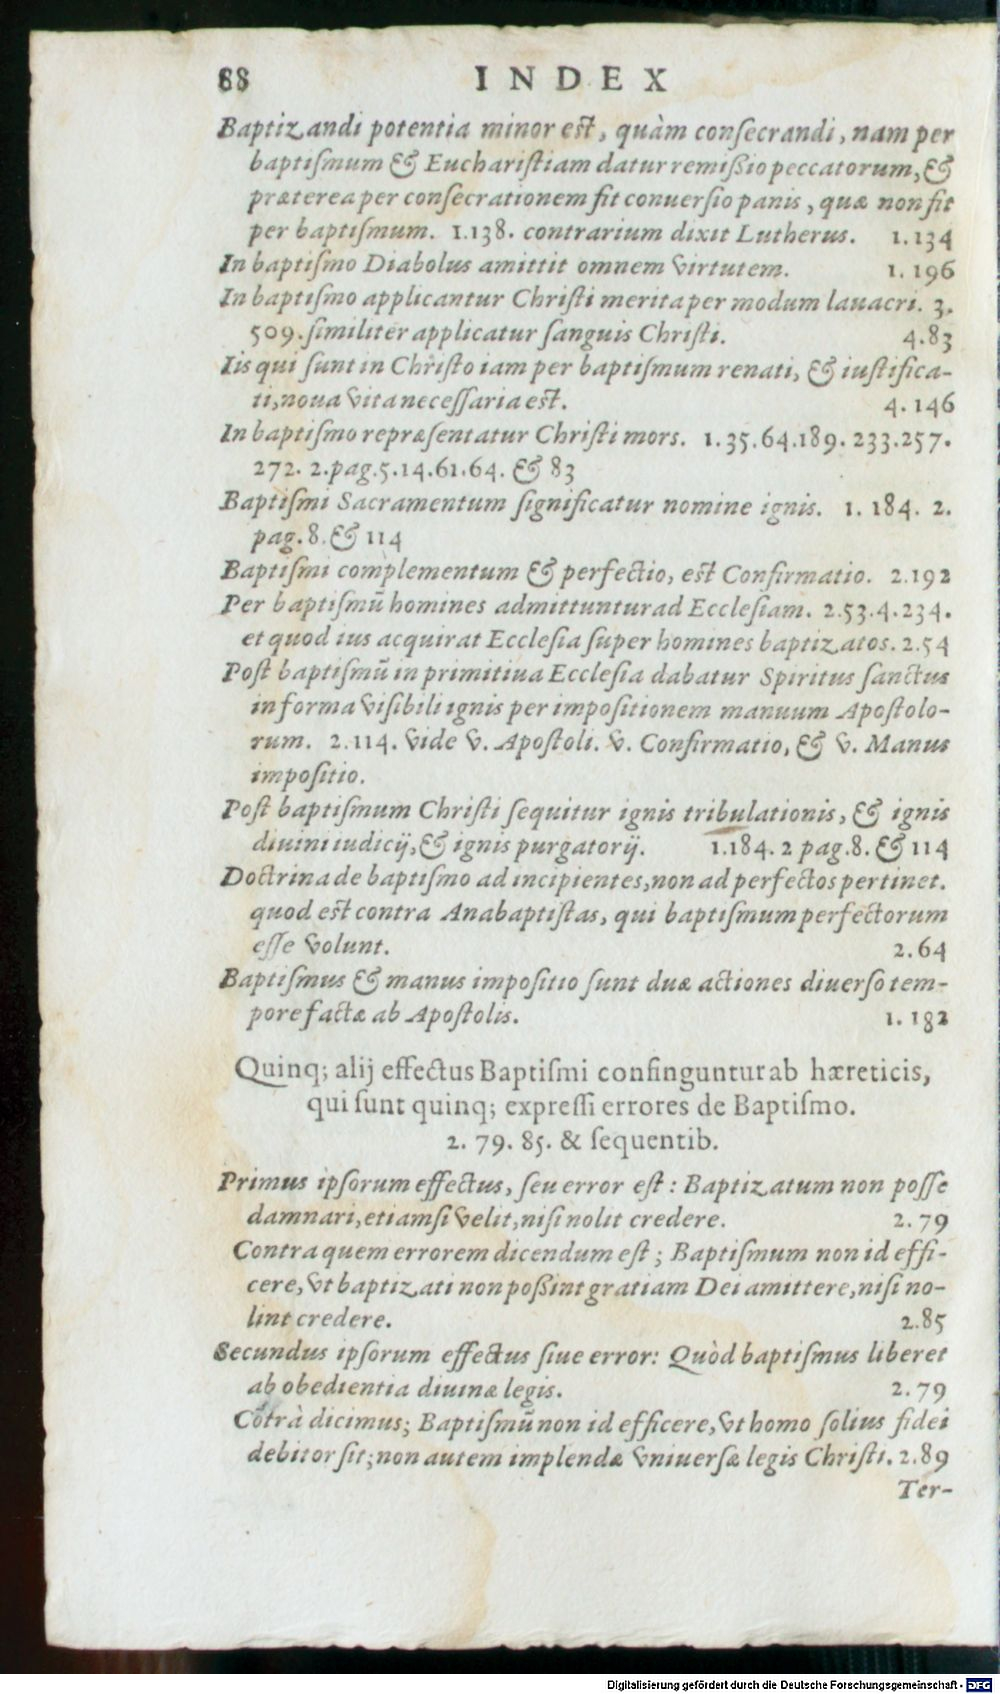 88 INDEX
Baptizandi potentia minor est, quàm consecrandi, nam per
baptiſmum & Euchariſtiam datur remißio peccatorum, &
præterea per conſecrationem fit conuerſio panis, quæ non fit
per baptiſmum. 1.138. contrarium dixit Lutherus. 1.134
In baptiſmo Diabolus amittit omnem virtutem. 1. 196
In baptiſmo applicantur Chriſti merita per modum lauacri. 3.
509. ſimiliter applicatur ſanguis Chriſti. 4.83
Iis qui ſunt in Chriſto iam per baptiſmum renati, & iuſtifica-
ti, noua vita neceſſaria eſt. 4. 146
In baptiſmo repræſentatur Chriſti mors. 1.35.64.189.233.257.
272. 2.pag.5.14.61.64. & 83
Baptiſmi Sacramentum ſignificatur nomine ignis. 1. 184. 2.
pag. 8. & 114
Baptiſmi complementum & perfectio, eſt Confirmatio. 2.192
Per baptiſmū homines admittuntur ad Eccleſiam. 2.53.4.234.
et quod ius acquirat Eccleſia ſuper homines baptizatos. 2.54
Poſt baptiſmū in primitiua Eccleſia dabatur Spiritus ſanctus
in forma viſibili ignis per impoſitionem manuum Apoſtolo-
rum. 2.114. vide v. Apoſtoli. v. Confirmatio, & v. Manus
impoſitio.
Poſt baptiſmum Chriſti ſequitur ignis tribulationis, & ignis
diuini iudicij, & ignis purgatorij. 1.184. 2 pag.8. & 114
Doctrina de baptiſmo ad incipientes, non ad perfectos pertinet.
quod eſt contra Anabaptiſtas, qui baptiſmum perfectorum
eſſe volunt. 2.64
Baptiſmus & manus impoſitio ſunt duæ actiones diuerſo tem-
pore factæ ab Apoſtolis. 1. 182
Quinq; alij effectus Baptiſmi confinguntur ab hæreticis,
qui ſunt quinq; expreſſi errores de Baptiſmo.
2. 79. 85. & ſequentib.
Primus ipſorum effectus, ſeu error eſt: Baptizatum non poſſe
damnari, etiamſi velit, niſi nolit credere. 2.79
Contra quem errorem dicendum eſt; Baptiſmum non id effi-
cere, vt baptizati non poßint gratiam Dei amittere, niſi no-
lint credere. 2.85
Secundus ipſorum effectus ſiue error: Quòd baptiſmus liberet
ab obedientia diuinæ legis. 2.79
Cōtrà dicimus; Baptiſmū non id efficere, vt homo ſolius fidei
debitor ſit; non autem implendæ vniuerſæ legis Chriſti. 2.89
Ter-
Digitalisierung gefördert durch die Deutsche Forschungsgemeinschaft - DFG